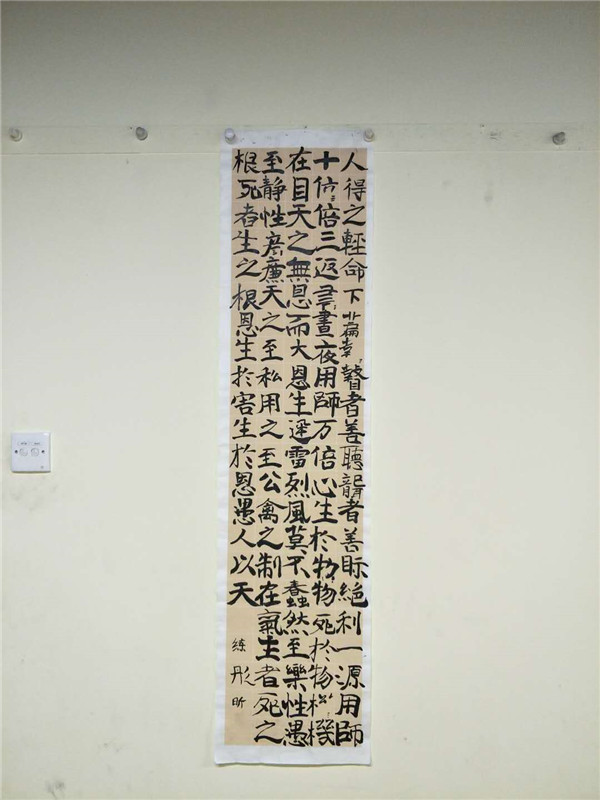 人得之輕命下瞽者善聽聾者善眎絕利一源用師
十倍三返晝夜用師万倍心生於物物死於物機
在目天之無恩而大恩生迅雷烈風莫不蠢然至樂性愚
至靜性廉天之至私用之至公禽之制在氣生者死之
根死者生之根恩生於害生於恩愚人以天
練彤昕